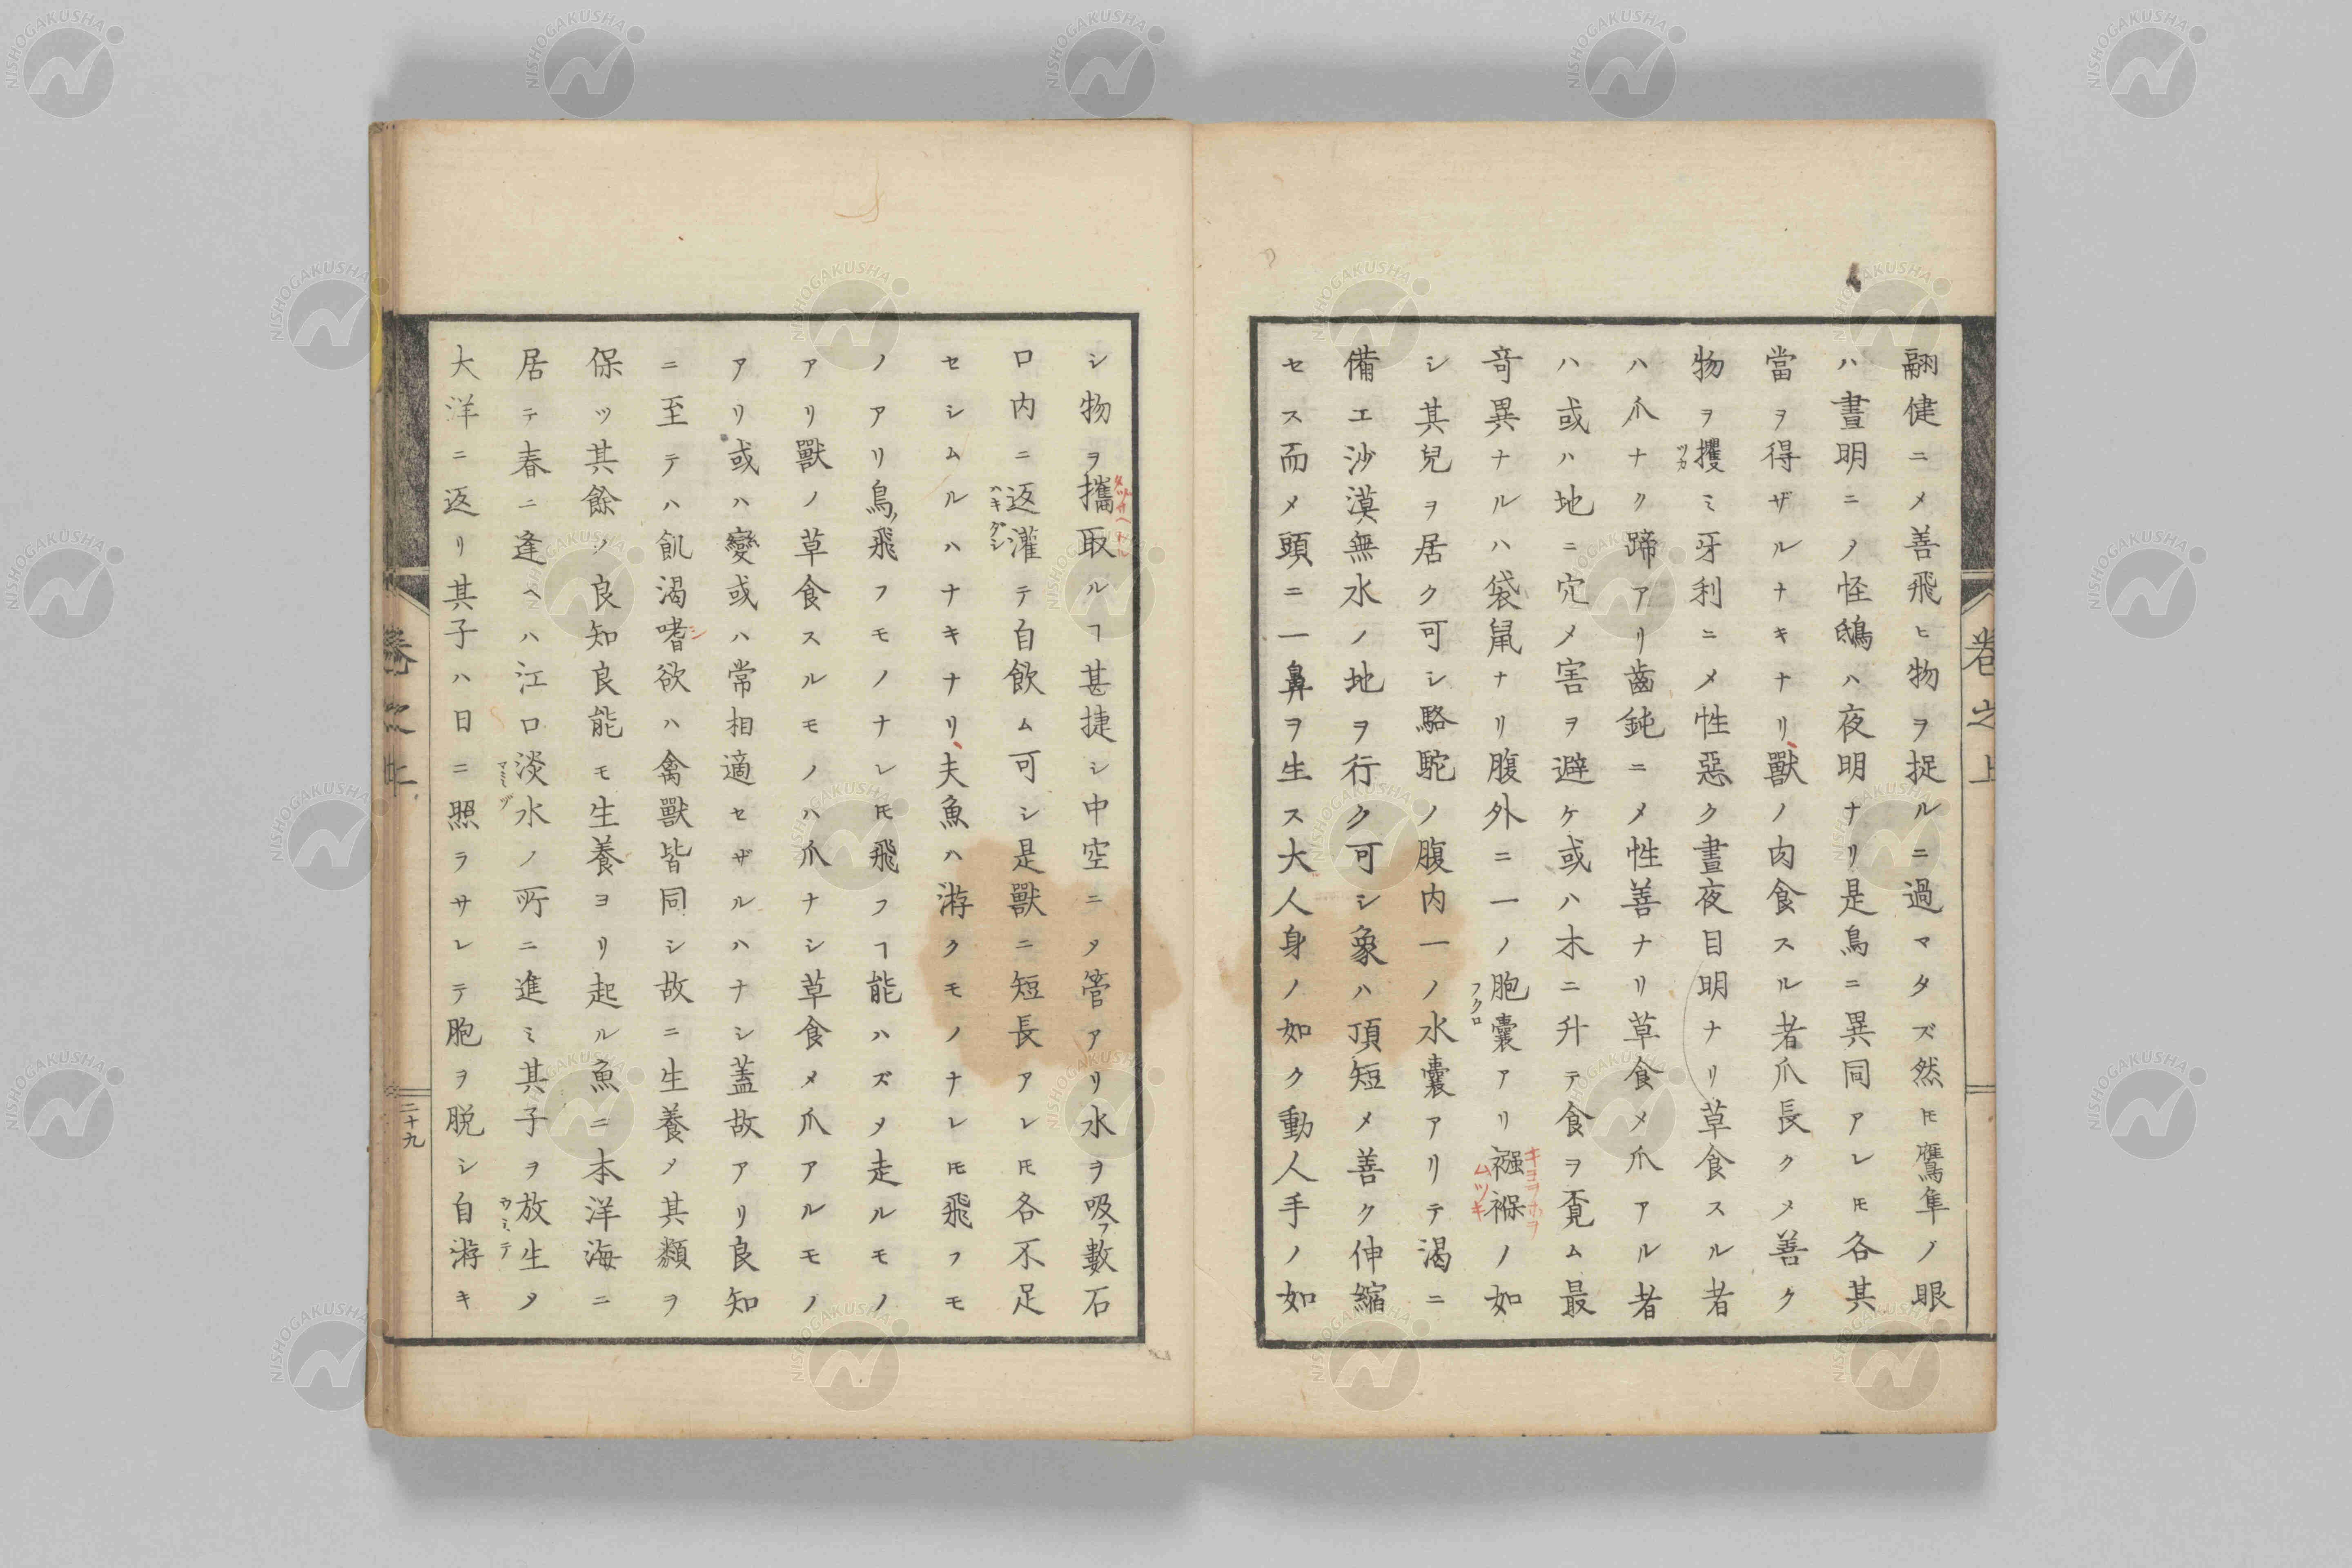 翮健ニ〆善飛ヒ物ヲ捉ルニ過マタズ然𪜈鷹隼ノ眼
ハ晝明ニノ怪鴟ハ夜明ナリ是鳥ニ異同アレ𪜈各其
當ヲ得ザルナキナリ、獸ノ肉食スル者爪長ク〆善ク
物ヲ攫ミ牙利ニ〆性惡ク晝夜目明ナリ草食スル者
ツカ
ハ爪ナク蹄アリ齒鈍ニ〆性善ナリ草食〆爪アル者
ハ或ハ地ニ穴〆害ヲ避ケ或ハ木ニ升テ食ヲ覔ム最
奇異ナルハ袋鼠ナリ腹外ニ一ノ胞囊アリ襁褓ノ如
フクロ
ムツキ
シ其兒ヲ居ク可シ駱駝ノ腹内一ノ水囊アリテ渇ニ
備エ沙漠無水ノ地ヲ行ク可シ象ハ頂短〆善ク伸縮
セス而〆頭ニ一鼻ヲ生ス大人身ノ如ク動人手ノ如
卷之上
シ物ヲ攜取ルヿ甚捷シ中空ニ〆管アリ水ヲ吸フ數石
タヅサヘトル
口内ニ返灌テ自飲ム可シ是獸ニ短長アレ𪜈各不足
ハキダシ
セシムルハナキナリ、夫魚ハ游クモノナレ𪜈飛フモ
ノアリ鳥ノ飛フモノナレ𪜈飛フヿ能ハズ〆走ルモノ
アリ獸ノ草食スルモノハ爪ナシ草食〆爪アルモノ
アリ或ハ變或ハ常相適セザルハナシ蓋故アリ良知
ニ至テハ飢渴嗜欲ハ禽獸皆同シ故ニ生養〆其類ヲ
シ
保ツ其餘ノ良知良能モ生養ヨリ起ル魚ニ本洋海ニ
居テ春ニ逢ヘハ江口淡水ノ所ニ進ミ其子ヲ放生〆
マミヅ
大洋ニ返リ其子ハ日ニ照ラサレテ胞ヲ脱シ自游キ
卷之上
二十九